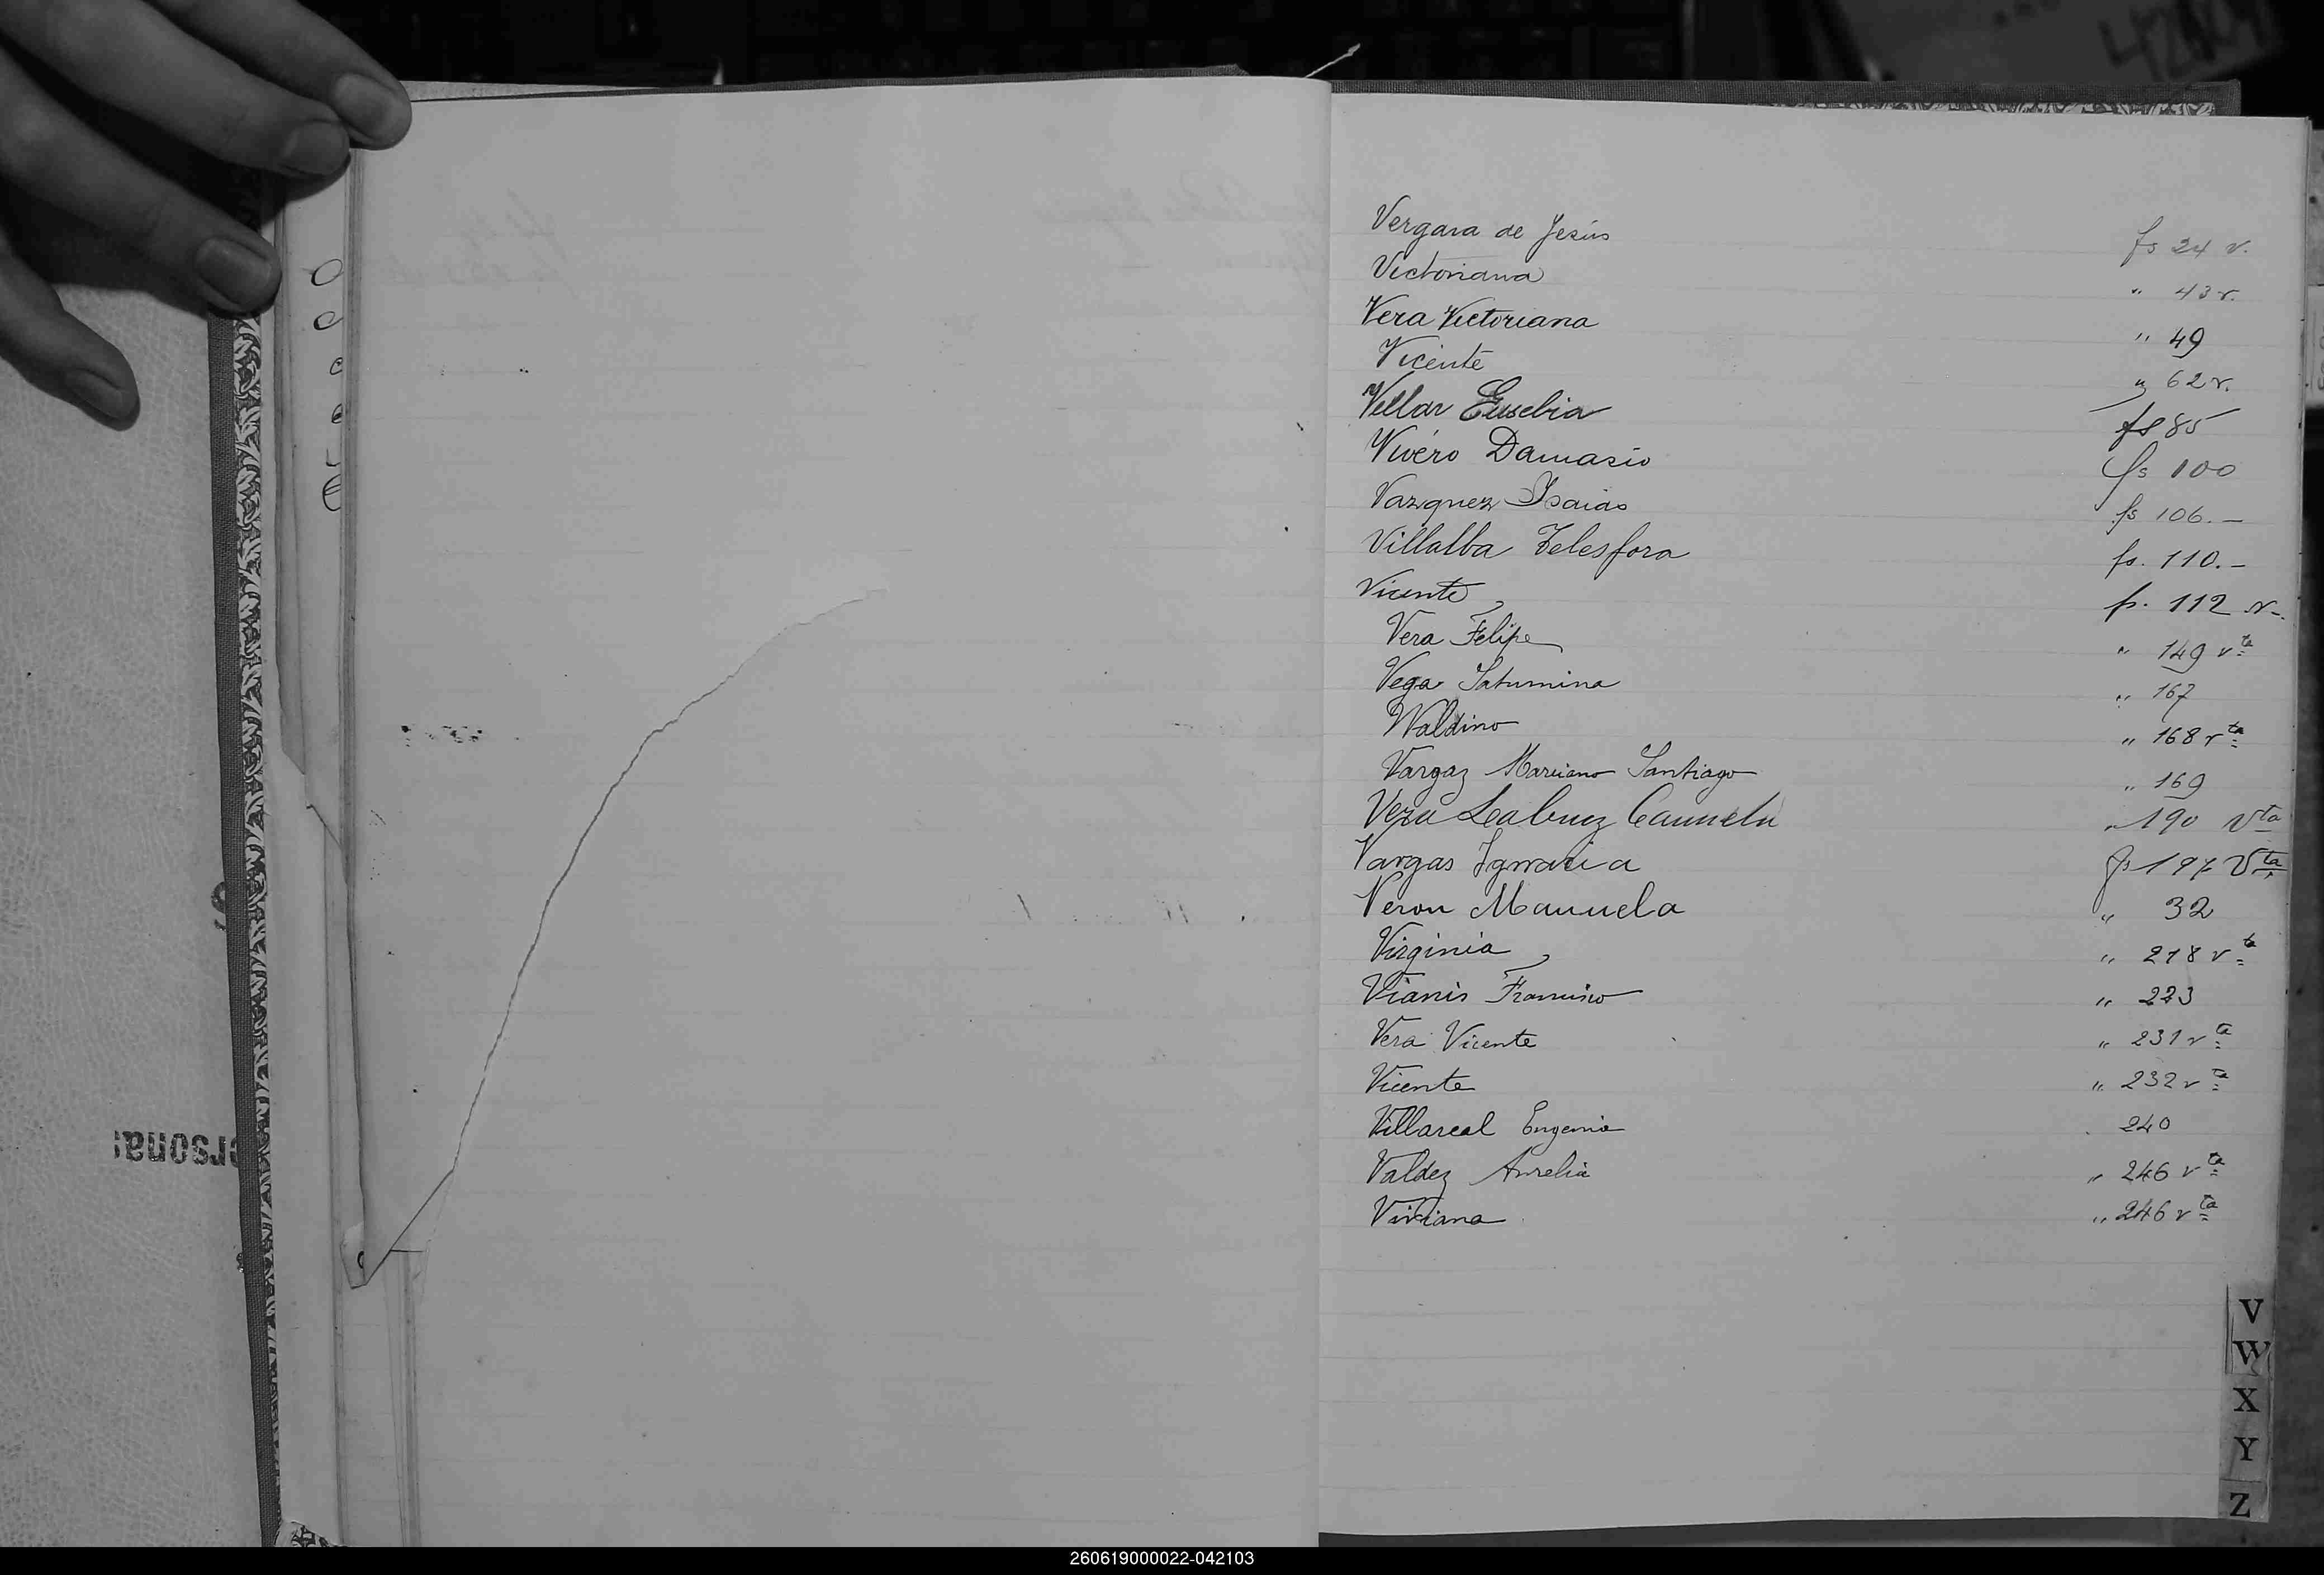 Vergara de Jesús fs 24 v.
Victoriana " 43 v.
Vera Victoriana " 49
Vicente " 62 v.
Vellar Eusebia fs 85
Vivero Damasio fs 100
Vazquez Isaias fs 106.—
Villalba Telesfora fs. 110.—
Vicente fs. 112 v.
Vera Felipe " 149 vta
Vega Saturnina " 167
Waldino " 168 vta
Vargaz Marciano Santiago " 169
Vera " 190 Vta
Vargas Ignacia fs 197 Vta
Veron Manuela " 32
Virginia " 218 vta
Vianis Francisco " 223
Vera Vicente " 231 vta
Vicente " 232 vta
Villareal Eugenia 240
Valdez Aurelia " 246 vta
Viviana " 246 vta
V
W
X
Y
Z
260619000022-042103